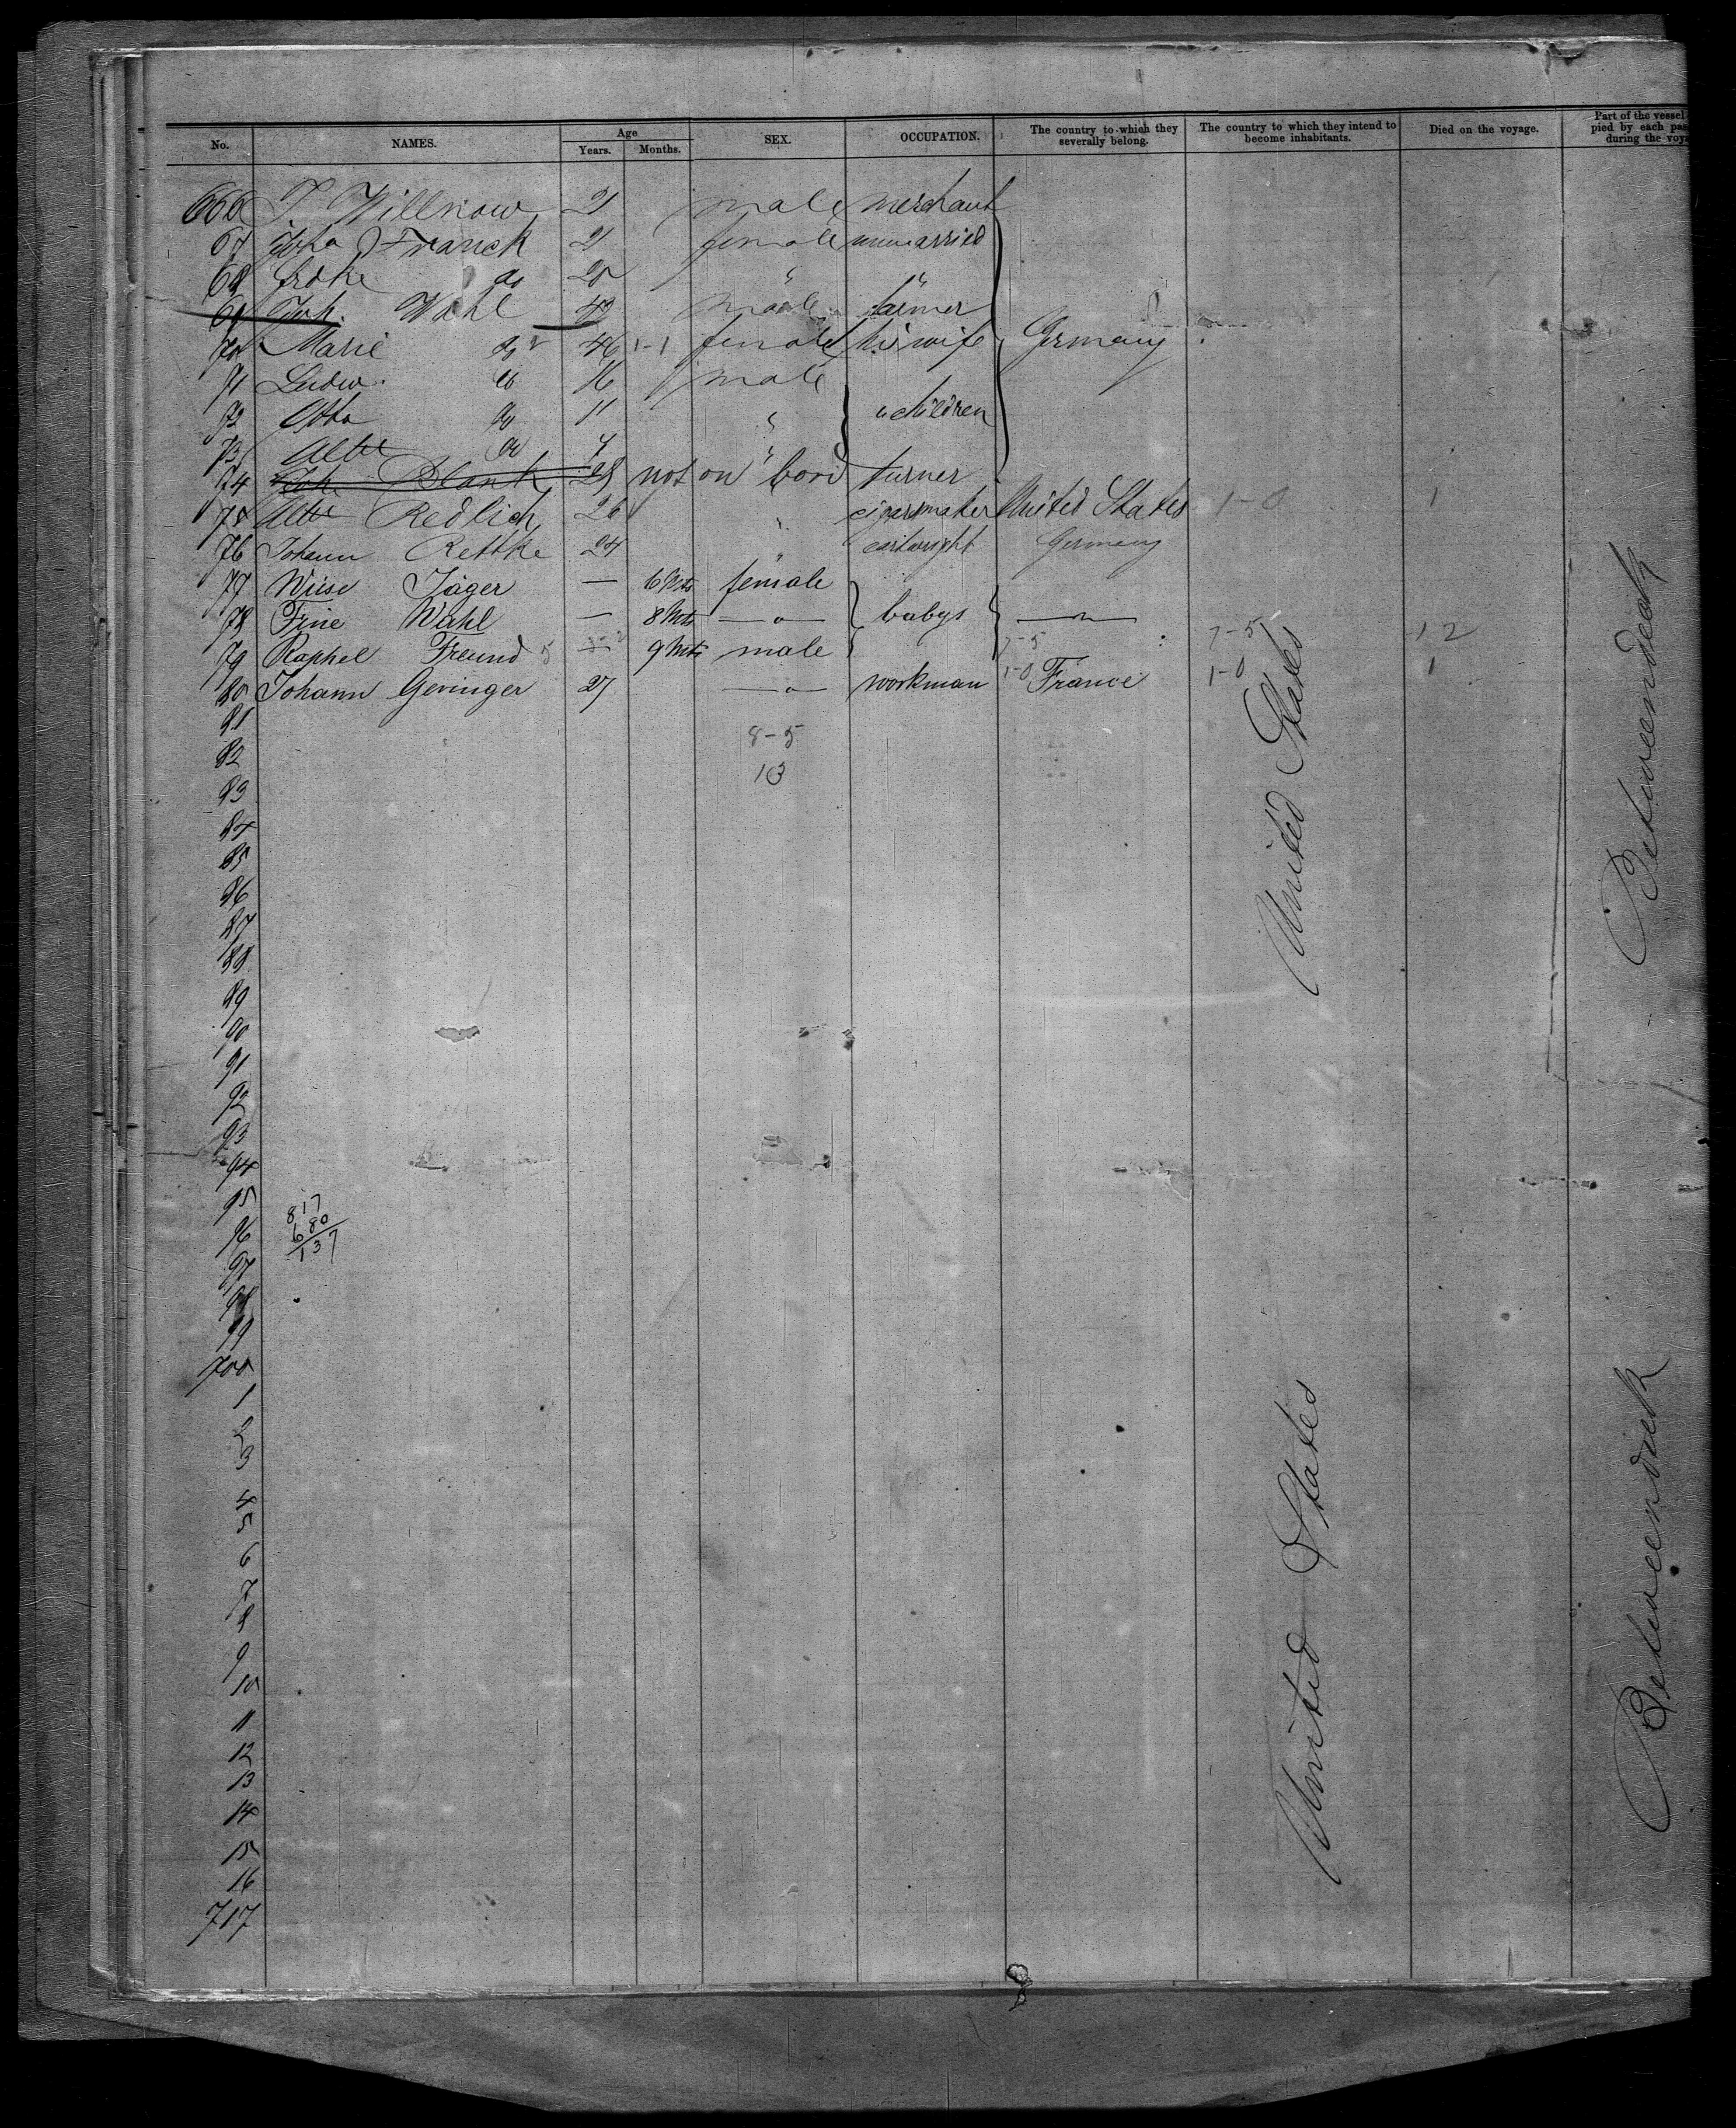 No. NAMES. Age Years. Months. SEX. OCCUPATION. The country to which they severally belong. The country to which they intend to become inhabitants. Died on the voyage. Part of the vessel pied by each pas during the voya
666 T. Willnow 21 male merchant
67 Franck 21 female unmarried
68 do 20 " "
69 Joh. Wahl 42 male farmer
70 Marie do 46 1-1 female his wife Germany
71 Ludw. do 16 male
72 Otto do 11 " children
73 do 7 "
74 Joh Blank 28 not on bord turner
75 Redlich 26 " cigarsmaker United States 1-0 1
76 Johann Rettke 24 " cartwright Germany
77 Wiese Jäger — 6 Mts female
78 Trine Wahl — 8 Mts —"— babys —"—
79 Raphel Freund — 9 Mts male 7-5 7-5 12
80 Johann Geringer 27 —"— workman 1-0 France 1-0 1
81
8-5
82
13
83
84
85
86
87
88
89
90
91
92
93
94
95
817
96
680
137
97
98
99
700
1
2
3
4
5
6
7
8
9
10
11
12
13
14
15
16
717
United States
Betweendeck
United States
Betweendeck